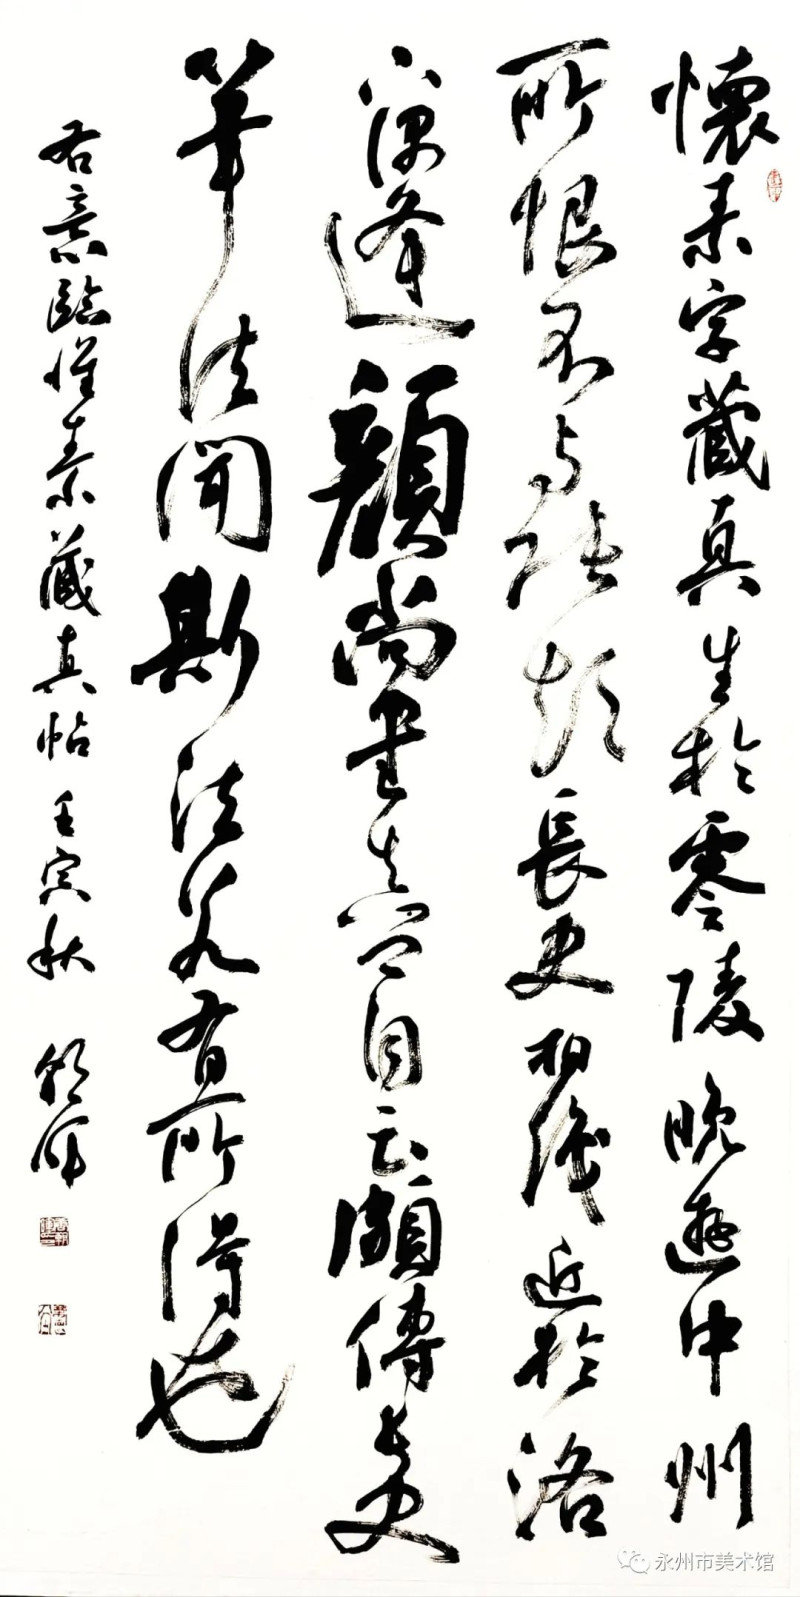 懷素字藏真生於零陵晚遊中州
所恨不与張顛長史相識近於洛
下偶逢顏尚書真卿自云頗傳長史
筆法聞斯法若有所得也
右意臨懷素藏真帖 壬寅秋
永州市美术馆